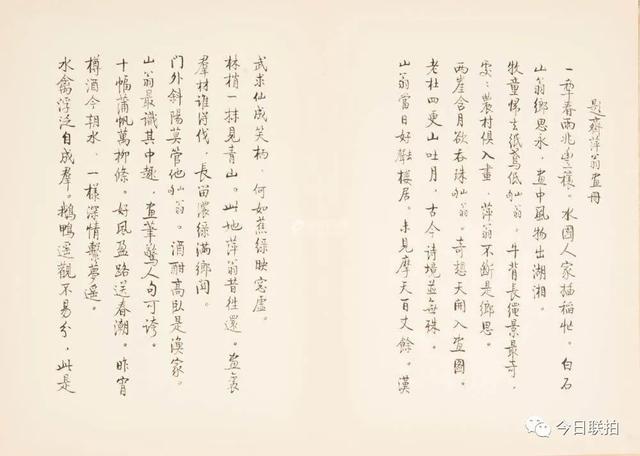 题齐萍翁画册
一犁春雨兆丰穰。水国人家插稻忙。白石
山翁乡思永，画中风物出湖湘。
牧童归去纸鸢低，牛背长绳景最奇，
农村俱入画，萍翁不断是乡思。
两崖含月欲吞珠。奇想天开入画图。
老杜四更山吐月，古今诗境并每殊。
山翁当日好楼居。未见摩天百丈馀。汉
武求仙成笑柄，何如蕉绿映窗虚。
林梢一抹见青山。此地萍翁昔往还。画里
群材谁肯伐，长留浓绿满乡关。
门外斜阳莫管他，酒酣高卧是渔家。
山翁最识其中趣，画笔惊人句可夸。
十幅蒲帆万柳条。好风盈路送春潮。昨宵
樽酒今朝水，一样深情系梦遥。
水禽浮泛自成群。鹅鸭遥观不易分，此是
今日联拍